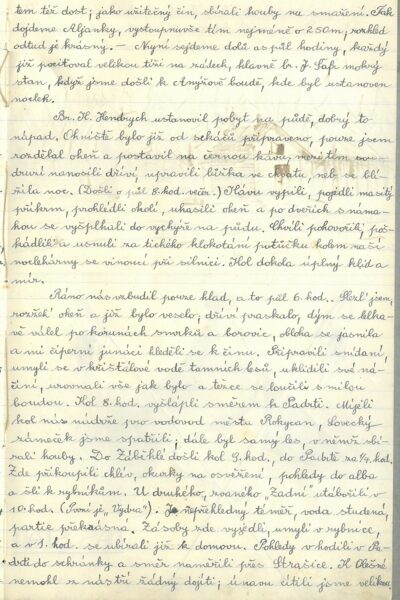 tem též dost; jako užitečný čin, sbírali houby na smažení. Tak
dojdeme Aljanky, vystoupnuvše tím nejméně o 250m; rozhled
odtud je krásný. — Nyní sejdeme dolů as půl hodiny, každý
již pociťoval velikou tíži na zádech, hlavně br. J. Šafr mokrý
stan, když jsme došli k Anýžově boudě, kde byl ustanoven
nocleh.
Br. H. Hendrych ustanovil pobyt na půdě, dobrý to
nápad. Ohniště bylo již od sekáčů připraveno, pouze jsem
rozdělal oheň a postavil na černou kávu, mezi tím
druzi nanosili dříví, upravili lůžka ve, neb se blí-
žila noc. (Došli o půl 8. hod. večer.) Kávu vypili, pojedli masitý
příkrm, prohlédli okolí, uhasili oheň a po dveřích s náma-
hou se vyšplhali do vychýře na půdu. Chvíli pohovořili, poš-
kádlili a usnuli za tichého klokotání potůčku kolem naší
noclehárny se vinoucí při silnici. Kol dokola úplný klid a
mír.
Ráno nás vzbudil pouze hlad, a to půl 6. hod.. Slezl jsem,
rozžeh' oheň a již bylo veselo; dříví praskalo, dým se líha-
vě válel po korunách smrků a borovic, obloha se jasnila
a mi čiperní junáci hleděli se k činu. Připravili snídani,
umyli se v křišťálové vodě tamních lesů, uklidili své ná-
činí, urovnali vše jak bylo a těžce se loučili s milou
boudou. Kol 8. hod. vyšlápli směrem k Padrti. Míjeli
kol nás nádrže pro vodovod města Rokycan, Lovecký
zámeček jsme spatřili, dále byl samý les, v němž sbí-
rali houby. Do Záběhlé došli kol 9. hod., do Padrtě za ¼ hod.
Zde přikoupili chléb, okurky na osvěžení, pohledy do alba
a šli k rybníkům. U druhého, zvaného „Zadní" utábořili v
10. hod. (První je „Vydra"). Je nepřehledný téměř, voda studená,
partie překrásná. Zásoby zde vyjedli, umyli v rybníce,
a v 1. hod. se ubírali již k domovu. Pohledy vhodili v Pa-
drti do schránky a směr naměřili přes Strašice. K Olešné
nemohl z nás tři žádný dojíti; únavu cítili jsme velikou